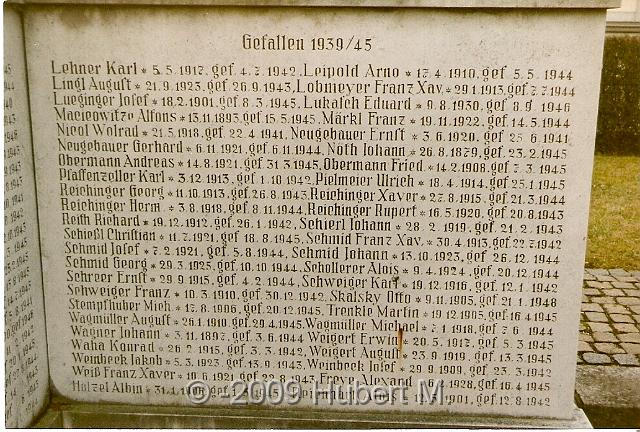 Gefallen 1939/45
Lehner Karl * 5.5.1917, gef. 4.7.1942, Leipold Arno * 17.4.1910, gef. 5.5.1944
Lingl August * 21.9.1923, gef. 26.9.1943, Lobmeyer Franz Xav. * 29.1.1913, gef. 7.7.1944
Lueginger Josef * 18.2.1901, gef. 8.3.1945, Lukasch Eduard * 9.8.1930, gef. 8.9. 1946
Macieowitz Alfons * 13.11.1893, gef. 15.5.1945, Märkl Franz * 19.11.1922, gef. 14.5.1944
Nicol Wolrad * 21.5.1918, gef. 22.4.1941, Neugebauer Ernst * 3.6.1920, gef. 25.6.1941
Neugebauer Gerhard * 6.11.1921, gef. 6.11.1944, Nöth Johann * 26.8.1879, gef. 23.2.1945
Obermann Andreas * 14.8.1921, gef. 31.3.1945, Obermann Fried. * 14.2.1908, gef. 7.3.1945
Pfaffenzeller Karl * 3.12.1913, gef. 1.10.1942, Pielmeier Ulrich * 18.4.1914, gef. 25.1.1945
Reichinger Georg * 11.10.1913, gef. 26.8.1943, Reichinger Xaver * 27.8.1915, gef. 21.3.1944
Reichinger Herm. * 3.8.1918, gef. 8.11.1944, Reichinger Rupert * 16.5.1920, gef. 20.8.1943
Reith Richard * 19.12.1912, gef. 26.1.1942, Schierl Johann * 28.2.1919, gef. 21.2.1943
Schießl Christian * 11.7.1921, gef. 18.8.1945, Schmid Franz Xav. * 30.4.1913, gef. 22.7.1942
Schmid Josef * 7.2.1921, gef. 5.8.1944, Schmid Johann * 13.10.1923, gef. 26.12.1944
Schmid Georg * 29.3.1925, gef. 10.10.1944, Schollerer Alois * 9.4.1924, gef. 20.12.1944
Schreer Ernst * 29.9.1915, gef. 4.2.1944, Schweiger Karl * 19.12.1916, gef. 12.1.1942
Schweiger Franz * 10.3.1910, gef. 30.12.1942, Skalsky Otto * 9.11.1905, gef. 21.1.1948
Stempfhuber Mich. * 17.8.1906, gef. 20.12.1945, Trenkle Martin * 19.12.1905, gef. 16.4.1945
Wagmüller August * 26.1.1910, gef. 29.4.1945, Wagmüller Michael * 7.1.1918, gef. 7.6.1944
Wagner Johann * 3.11.1897, gef. 3.6.1944, Weigert Erwin * 20.5.1917, gef. 5.3.1945
Waha Konrad * 26.2.1915, gef. 3.3.1942, Weigert August * 23.9.1919, gef. 13.3.1945
Weinbeck Jakob * 5.3.1923, gef. 13.9.1943, Weinbeck Josef * 29.9.1909, gef. 23.3.1942
Weiß Franz Xaver * 10.6.1921, gef. 22.8.1943, Freyy Alexand. 1928, gef. 16.4.1945
Holzel Albin * 1901, gef. 12.8.1942
© - 2009 - Hubert M